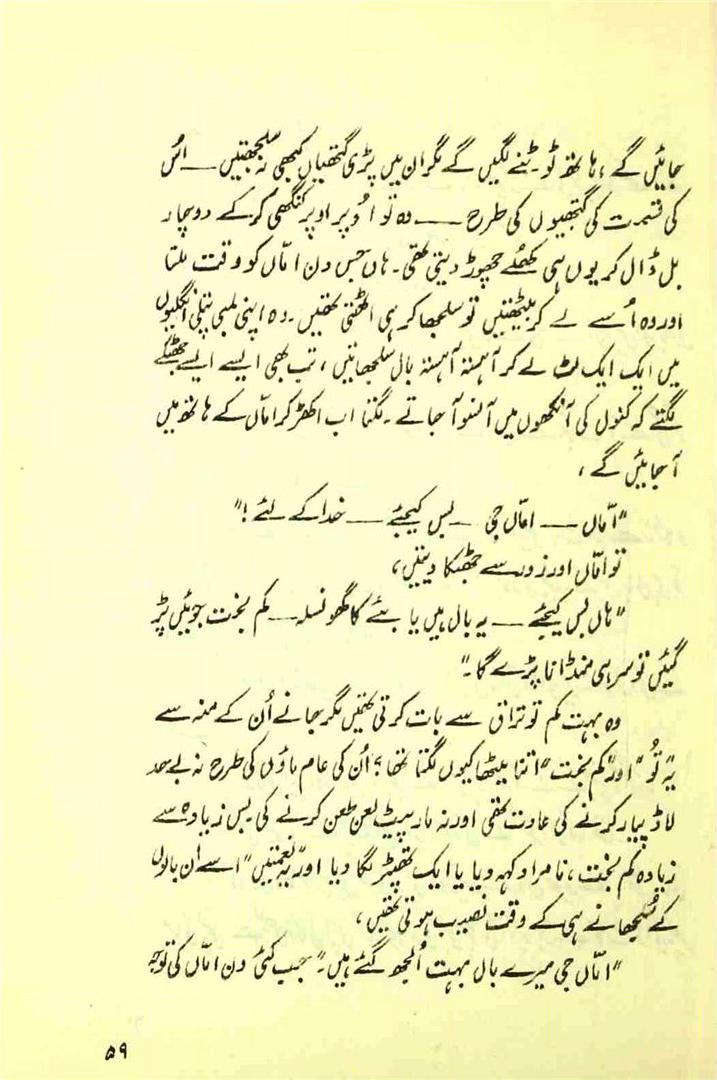 جائیں گے، ہاتھ ٹوٹنے لگیں گے مگر ان میں پڑی گتھیاں کبھی نہ سلجھتیں — اُس
کی قسمت کی گتھیوں کی طرح — وہ تو اُوپر اوپر کنگھی کر کے دوچار
بل ڈال کر یوں ہی کھلے چھوڑ دیتی تھی۔ ہاں جس دن امّاں کو وقت ملتا
اور وہ اُسے لے کر بیٹھتیں تو سلجھا کر ہی اٹھتی تھیں۔ وہ اپنی لمبی پتلی انگلیوں
میں ایک ایک لٹ لے کر آہستہ آہستہ بال سلجھاتیں، تب بھی ایسے ایسے جھٹکے
لگتے کہ کنول کی آنکھوں میں آنسو آ جاتے۔ لگتا اب اکھڑ کر امّاں کے ہاتھ میں
آ جائیں گے،
"امّاں — امّاں جی — بس کیجئے — خدا کے لئے!"
تو امّاں اور زور سے جھٹکا دیتیں،
"ہاں بس کیجئے — یہ بال ہیں یا بئے کا گھونسلہ — کم بخت جوئیں پڑ
گئیں تو سر ہی منڈانا پڑے گا۔"
وہ بہت کم تو تڑاق سے بات کرتی تھیں مگر جانے اُن کے منہ سے
یہ "تُو" اور "کم بخت" اتنا میٹھا کیوں لگتا تھا؟ اُن کی عام ماؤں کی طرح نہ بے حد
لاڈ پیار کرنے کی عادت تھی اور نہ مار پیٹ لعن طعن کرنے کی بس زیادہ سے
زیادہ کم بخت، نامراد کہہ دیا یا ایک تھپڑ لگا دیا اور یہ "نعمتیں" اسے ان بالوں
کے سُلجھانے ہی کے وقت نصیب ہوتی تھیں،
"امّاں جی میرے بال بہت اُلجھ گئے ہیں۔" جب کئی دن امّاں کی توجہ
۵۹